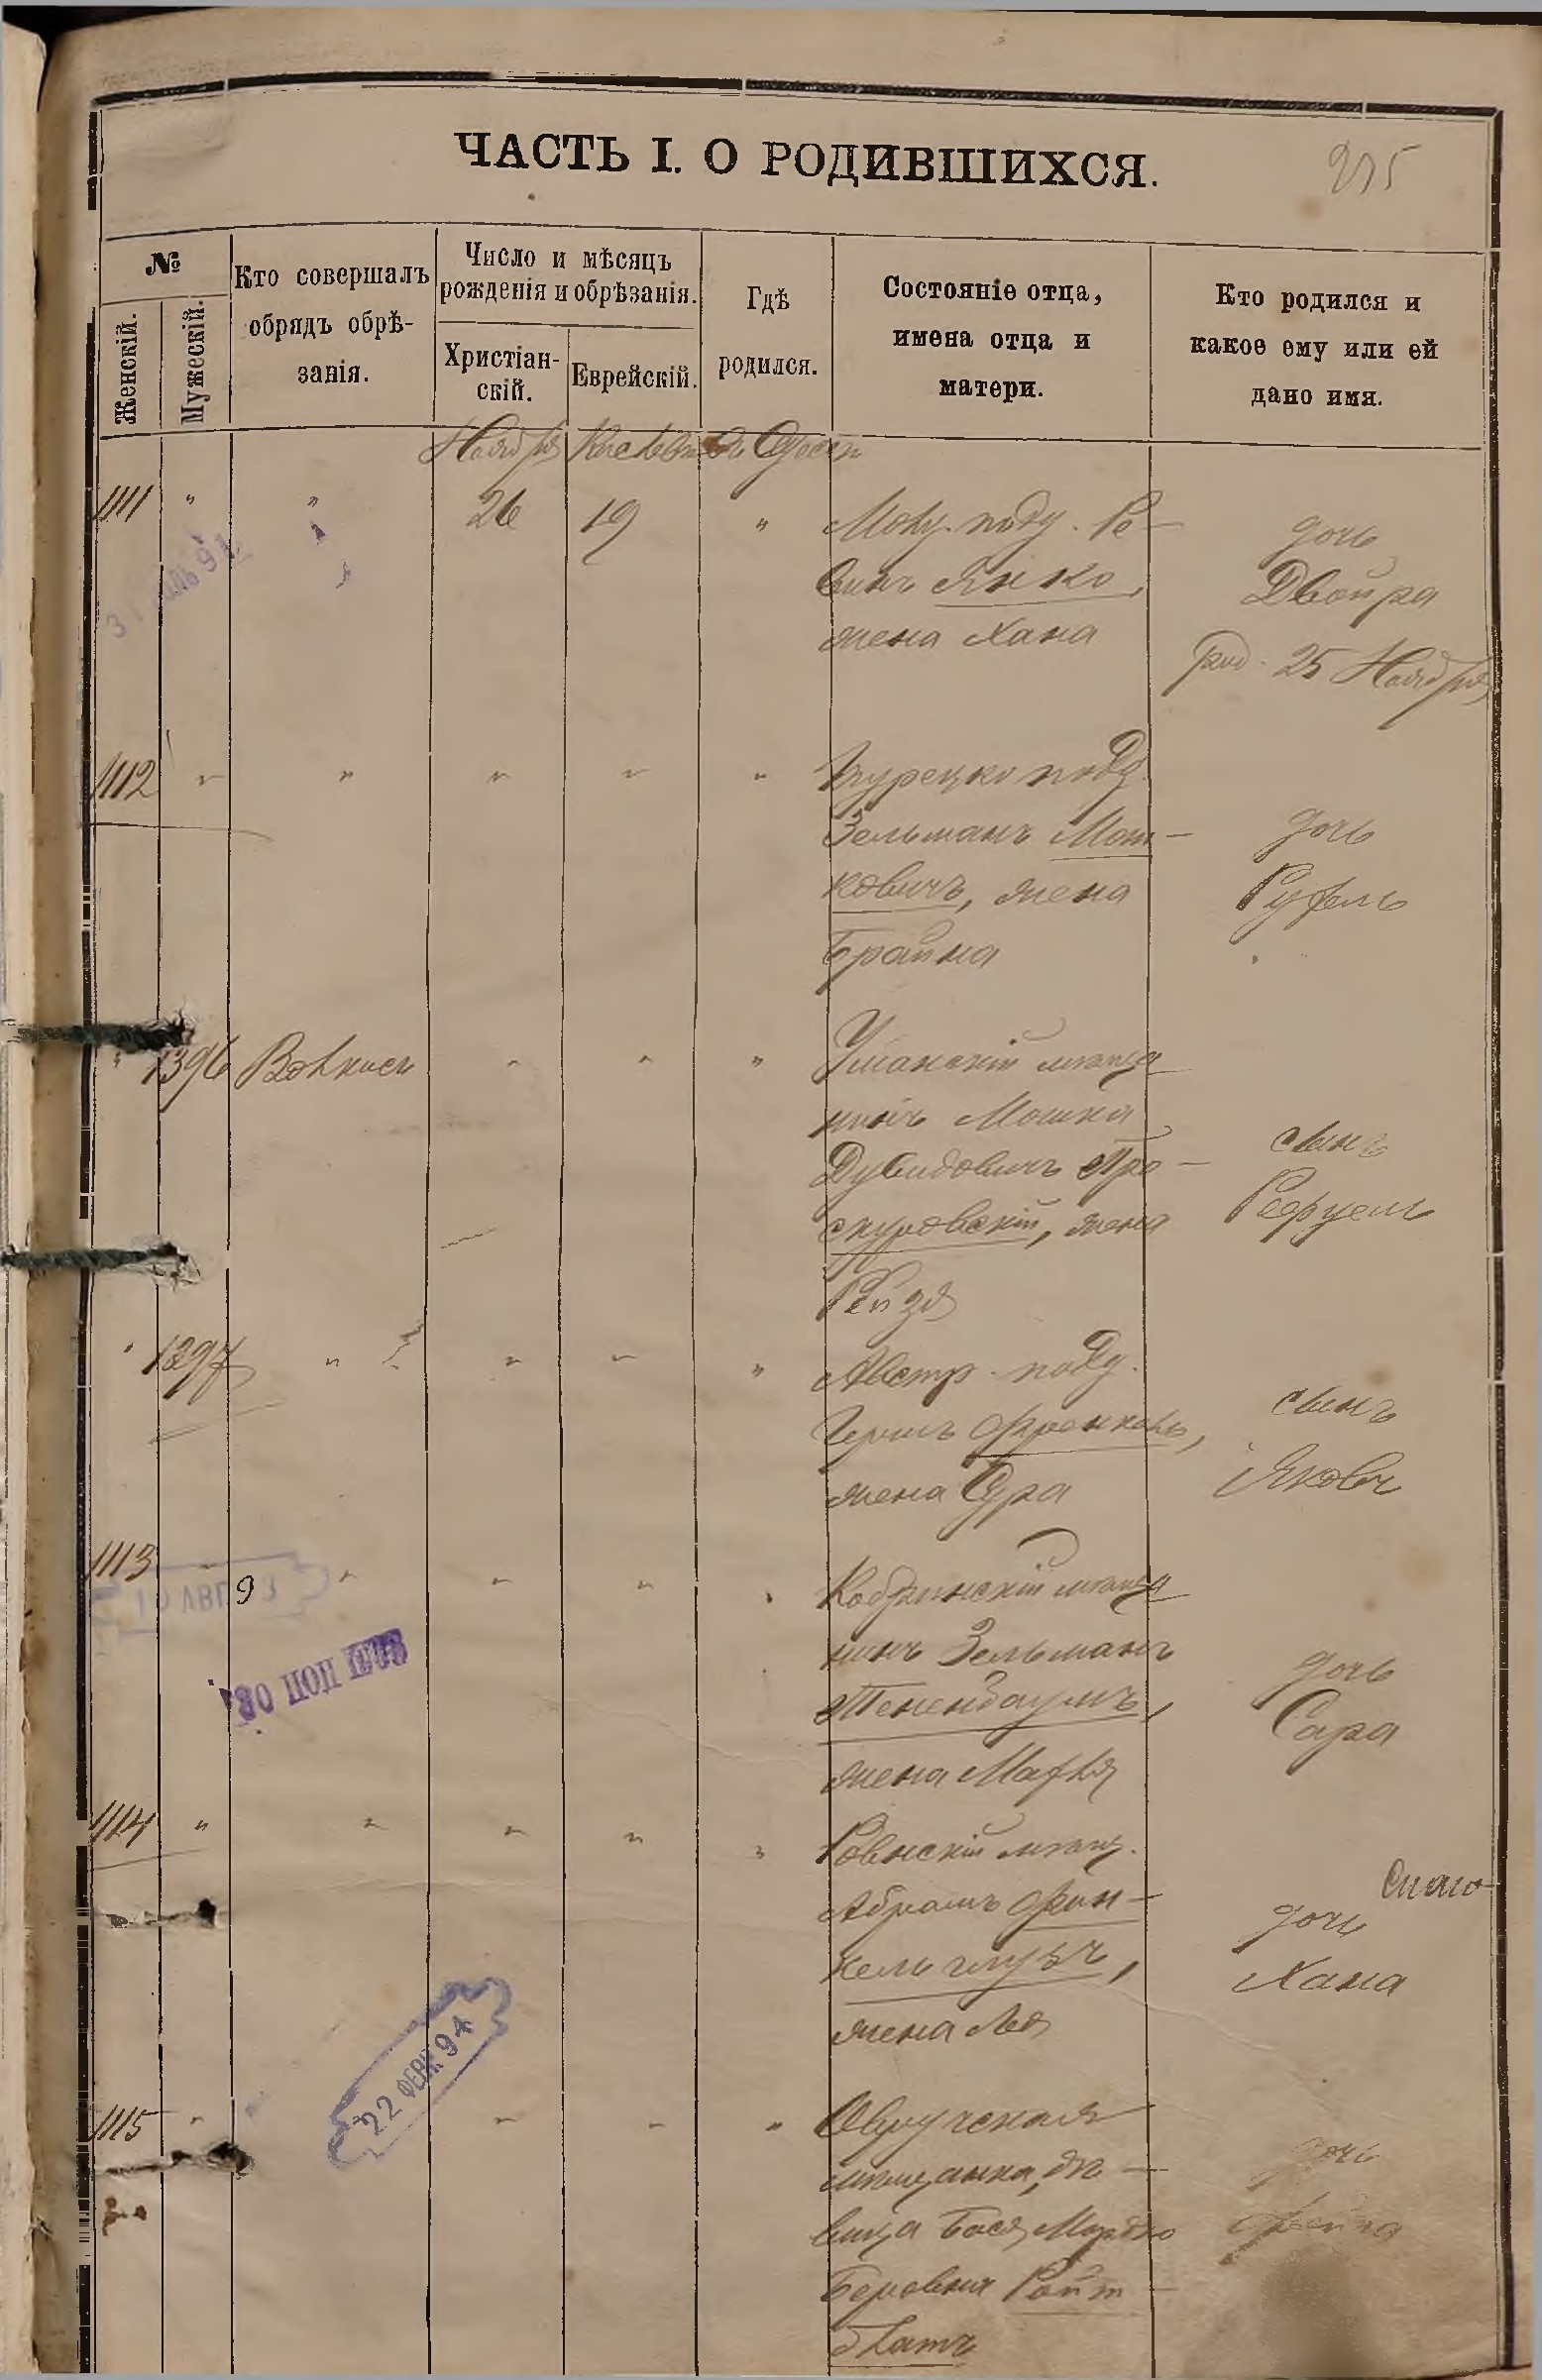 ЧАСТЬ I. О РОДИВШИХСЯ.
№
Женскій.
Мужескій.
Кто совершалъ
обрядъ обрѣ-
занія.
Число и мѣсяцъ
рожденія и обрѣзанія.
Христіан-
скій.
Еврейскій.
Гдѣ
родился.
Состояніе отца,
имена отца и
матери.
Кто родился и
какое ему или ей
дано имя.
Ноября Кислевъ въ Одессѣ
1111 " " 26 19 "
подд. Ре-
винъ Янко,
жена Хана
дочь
Двойра
род. 25 Ноября
1112 " " " " "
Турецко подд.
Зельманъ Мот-
ковичъ, жена
Брайна
дочь
Рухль
" 1396 " " "
Уманскій мѣща
нинъ Мошка
Дувидовичъ Про-
скуровскій, жена
Рейзя
сынъ
" 1397 " " " "
Австр. подд.
Гершъ Френкель,
жена Сура
сынъ
Яковъ
1113 " " " "
10 АВГ 93
Кобринскій мѣща
нинъ Зельманъ
Тененбаумъ,
жена
дочь
Сара
1114 " " " " "
Ровенскій мѣщ.
Абрамъ Фин-
кельштузъ,
жена Лея
дочь
Хана
22 ФЕВР 94
1115 " " " "
Овручская
мѣщанка, дѣ-
вица Бася Мордко
Беровна Ройт-
блатъ
дочь
Фейга